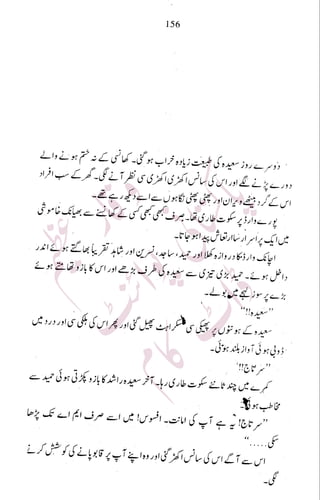 156
دوسرے روز سعیدہ کی طبیعت زیادہ خراب ہو گئی۔ کھانسی کے نہ ختم ہونے والے
دورے پڑنے لگے اور اس کی سانس اکھڑی اکھڑی سی نظر آنے لگی۔ گھر کے سب افراد
اس کے گرد بیٹھے ویران اور پھٹی پھٹی نگاہوں سے اسے دیکھ رہے تھے۔
پورے وارڈ پر سکوت طاری تھا۔ صرف کبھی کبھی کسی کے کھانسنے سے بھیانک خاموشی
میں ایک پر اسرار سا ارتعاش پیدا ہو جاتا۔
اچانک وارڈ کا دروازہ کھلا اور حمید، ساجد، نسرین اور شاہد تقریباً بھاگتے ہوئے اندر
داخل ہوئے۔ حمید بڑی تیزی سے سعیدہ کی طرف بڑھے اور اس کا بازو تھامتے ہوئے
بڑے پر سوز لہجے میں بولے۔
”سعیدہ!!“
سعیدہ کے ہونٹوں پر پھیکی سی مسکراہٹ پھیل گئی اور پھر اس کی ہلکی سی اور درد میں
ڈوبی ہوئی آواز بلند ہوئی۔
”سرتاج!!“
کمرے میں چند ثانئے سکوت طاری رہا۔ آخر سعیدہ راشد کا بازو پکڑتی ہوئی حمید سے
مخاطب ہوئی۔
”سرتاج! یہ ہے آپ کی امانت۔ افسوس! میں اسے صرف ایم اے تک پڑھا
سکی.....“
اس سے آگے اس کی سانس اکھڑ گئی اور وہ اپنے آپ پر قابو پانے کی کوشش کرنے
لگی۔